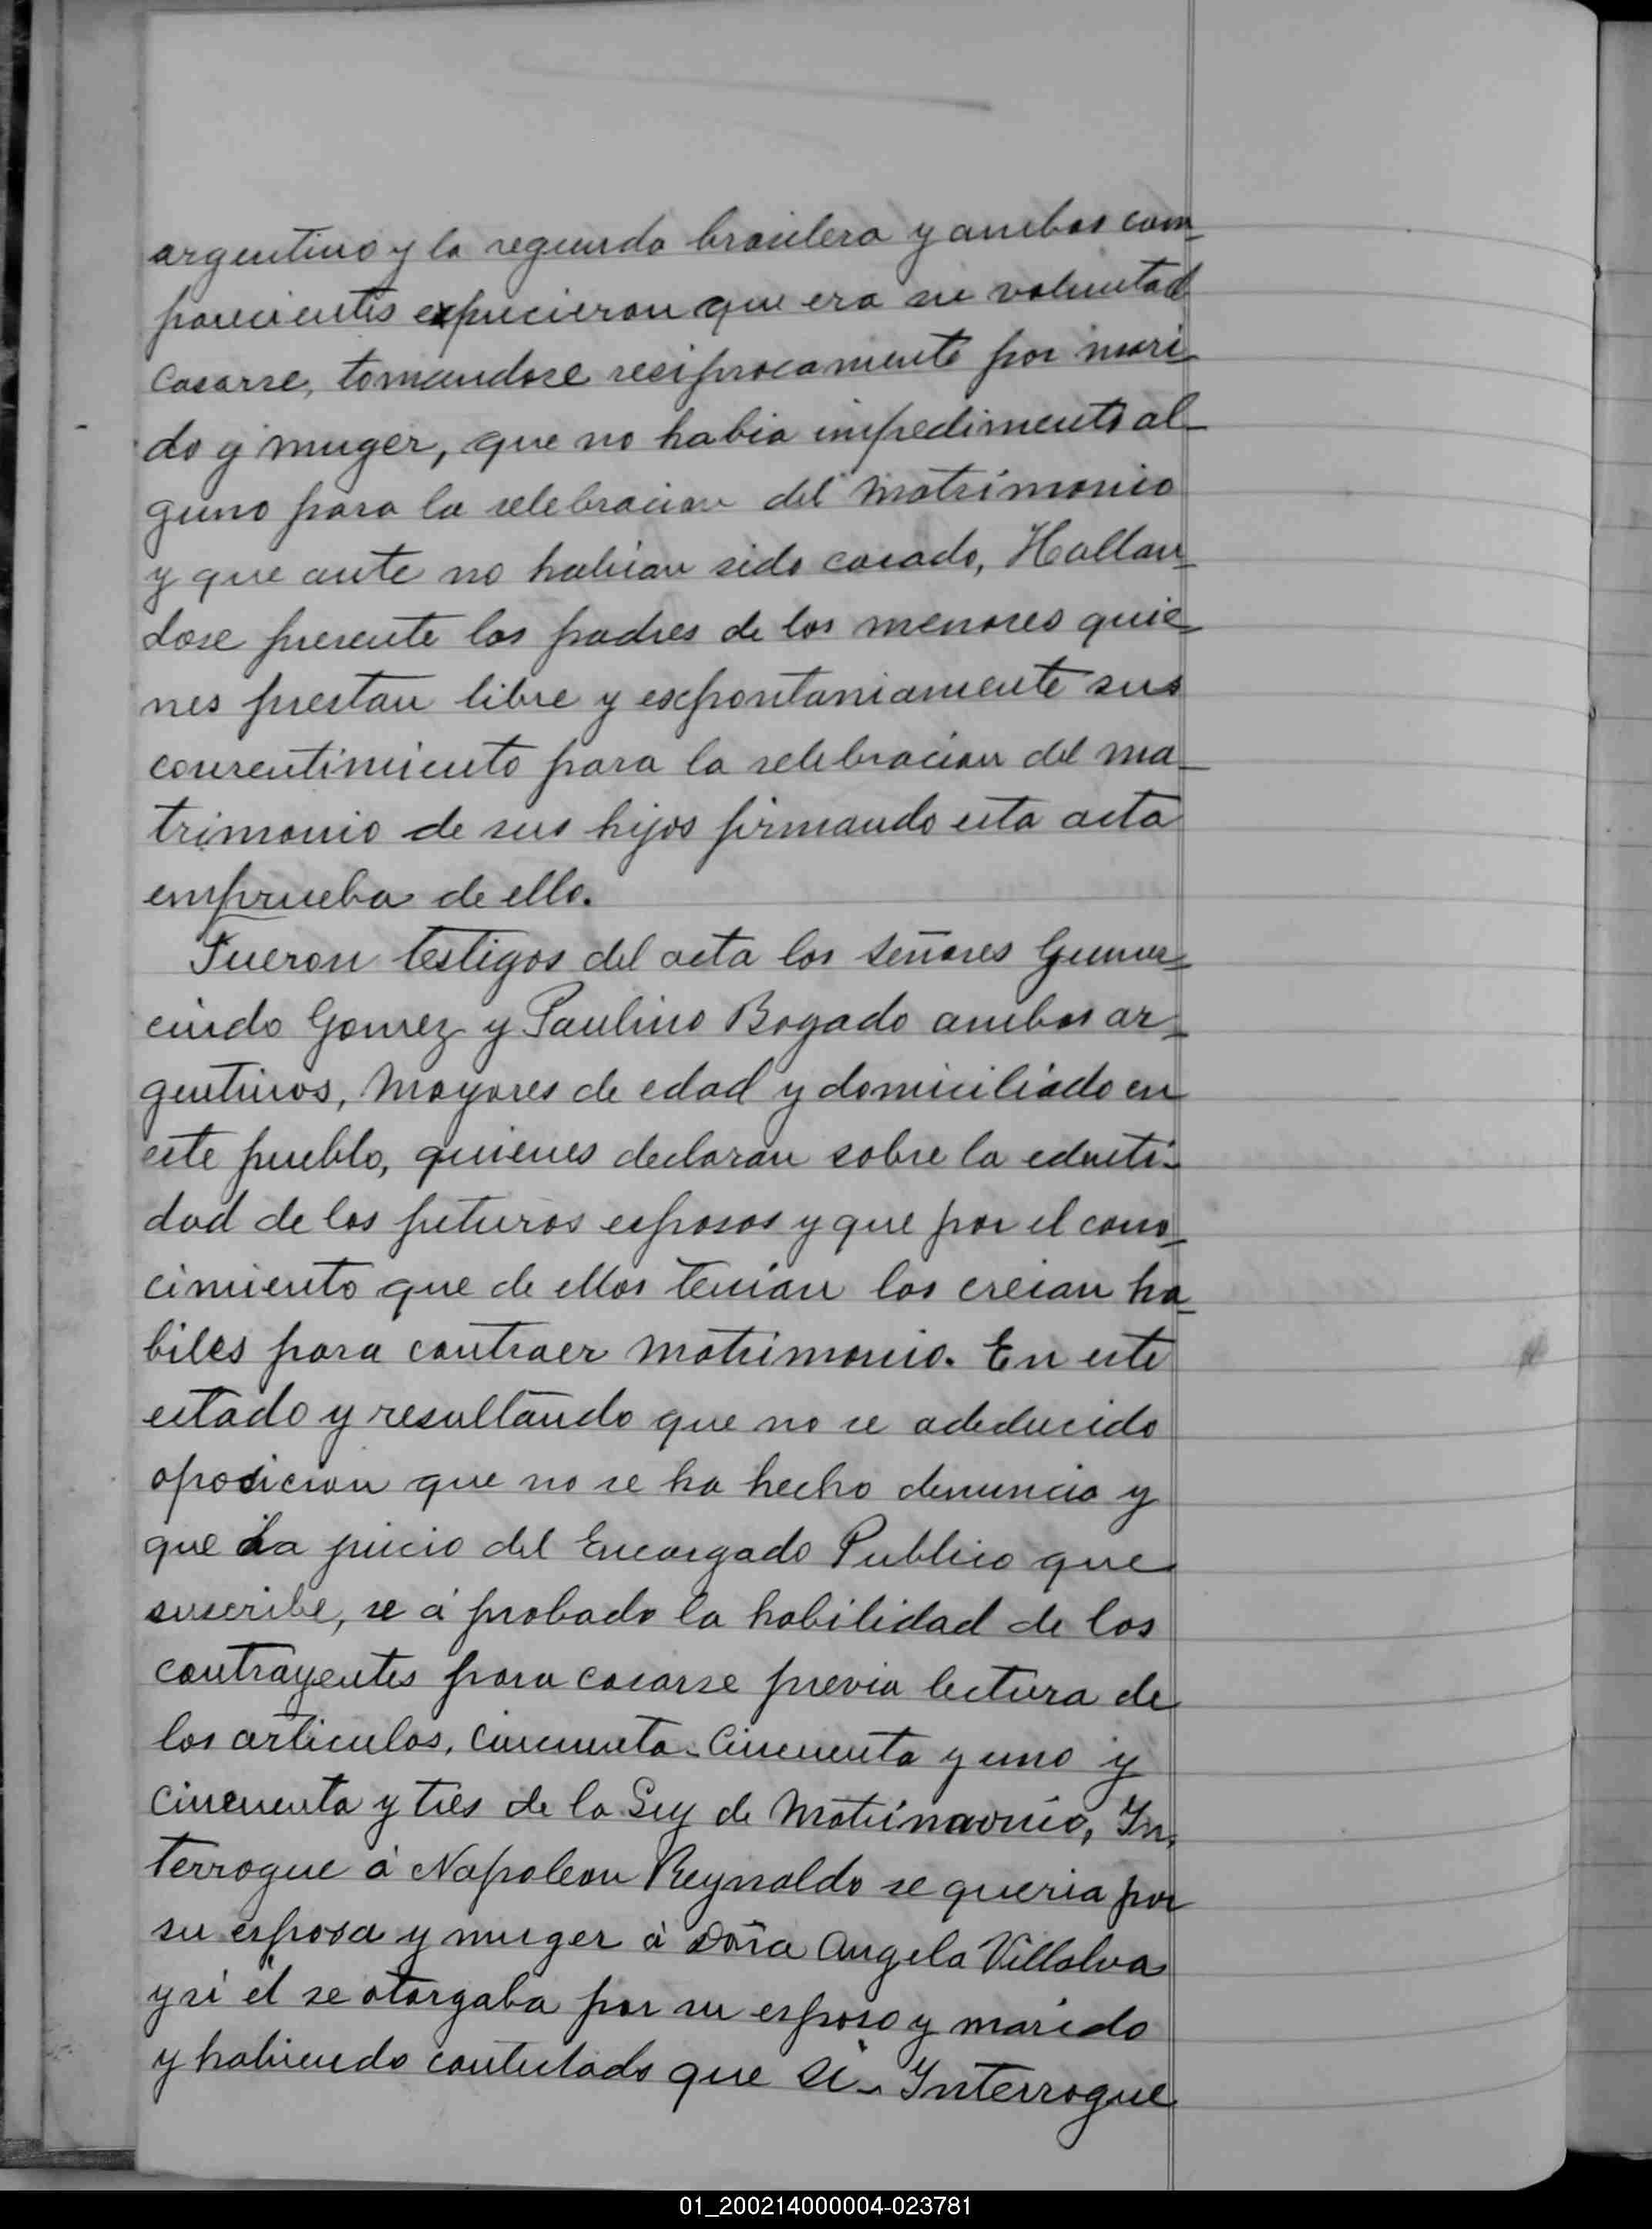 argentino y la segunda brasilera y ambos com_
parecientes expucieron que era su voluntad
Casarse, tomandose reciprocamente por mari_
do y muger, que no habia impedimento al_
guno para la selebracion del matrimonio
y que ante no habian sido casado, Hallan_
dose presente los padres de los menores quie_
nes prestan libre y espontaniamente sus
consentimiento para la selebracion del ma_
trimonio de sus hijos firmando esta acta
emprueba de ello.
Fueron testigos del acta los señores Gumer_
cindo Gomez y Paulino Bogado ambos ar_
gentinos, Mayores de edad y domiciliado en
este pueblo, quienes declaran sobre la edenti_
dad de los futuros esposos y que por el cono_
cimiento que de ellos tenian los creian ha_
biles para contraer matrimonio. En este
estado y resultando que no se adeducido
oposicion que no se ha hecho denuncia y
que a juicio del Encargado Publico que
suscribe, se á probado la habilidad de los
contrayentes para casarse previa lectura de
los articulos, cincuenta_ Cincuenta y uno y
cincuenta y tres de la Ley de Matrimonio, In_
terrogue á Napoleon Reynaldo se queria por
su esposa y muger á Doña Angela Villalva
y si él se otorgaba por su esposo y marido
y habiendo contestado que Si_ Interrogue
01_200214000004-023781